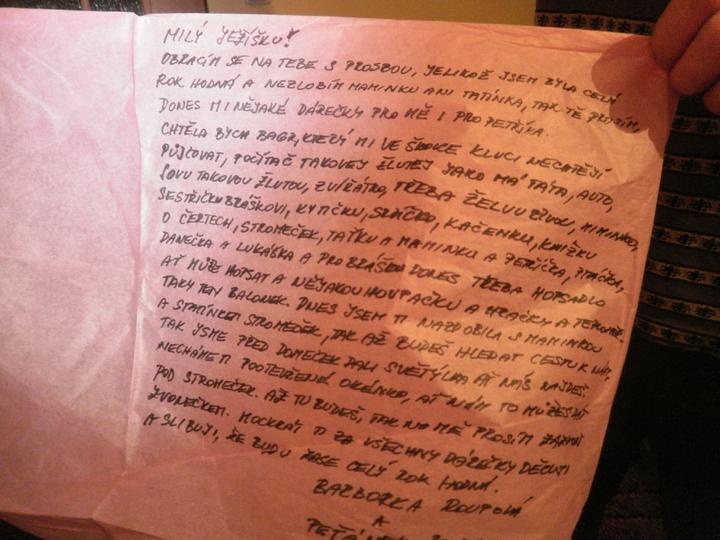 MILÝ JEŽÍŠKU!
OBRACÍM SE NA TEBE S PROSBOU, JELIKOŽ JSEM BYLA CELÝ
ROK HODNÁ A NEZLOBÍM MAMINKU ANI TATÍNKA, TAK TĚ PROSÍM,
DONES MI NĚJAKÉ DÁREČKY PRO MĚ I PRO PETŘÍKA.
CHTĚLA BYCH BAGR, KTERÝ MI VE ŠKOLCE KLUCI NECHTĚJÍ
PŮJČOVAT, POČÍTAČ TAKOVEJ ŽLUTEJ JAKO MÁ TÁTA, AUTO,
SOVU TAKOVOU ŽLUTOU, ZVÍŘÁTKO, TŘEBA ŽELVU ŽIVOU, MIMINKO,
SESTŘIČKU BRÁŠKOVI, KYTIČKU, KAČENKU, KNÍŽKU
O ČERTECH, STROMEČEK, TAŤKU A MAMINKU A PETŘÍČKA, PTÁČKA,
DANEČKA A LUKÁŠKA A PRO BRÁŠKU DONES TŘEBA HOPSADLO
AŤ MŮŽE HOPSAT A NĚJAKOU HOUPAČKU A HRAČKY A
TAKY TEN BALONEK. DNES JSEM TI NAZDOBILA S MAMINKOU
A S TATÍNKEM STROMEČEK, TAK AŽ BUDEŠ HLEDAT CESTU K NÁM,
TAK JSME PŘED DOMEČEK DALI SVĚTÝLKA AŤ NÁS NAJDEŠ.
NECHÁME TI POOTEVŘENÉ OKÉNKO, AŤ NÁM TO MŮŽEŠ DÁT
POD STROMEČEK. AŽ TU BUDEŠ, TAK NA MĚ PROSÍM ZAZVOŇ
ZVONEČKEM. MOCKRÁT TI ZA VŠECHNY DÁREČKY DĚKUJI
A SLIBUJI, ŽE BUDU ZASE CELÝ ROK HODNÁ.
BARBORKA
A